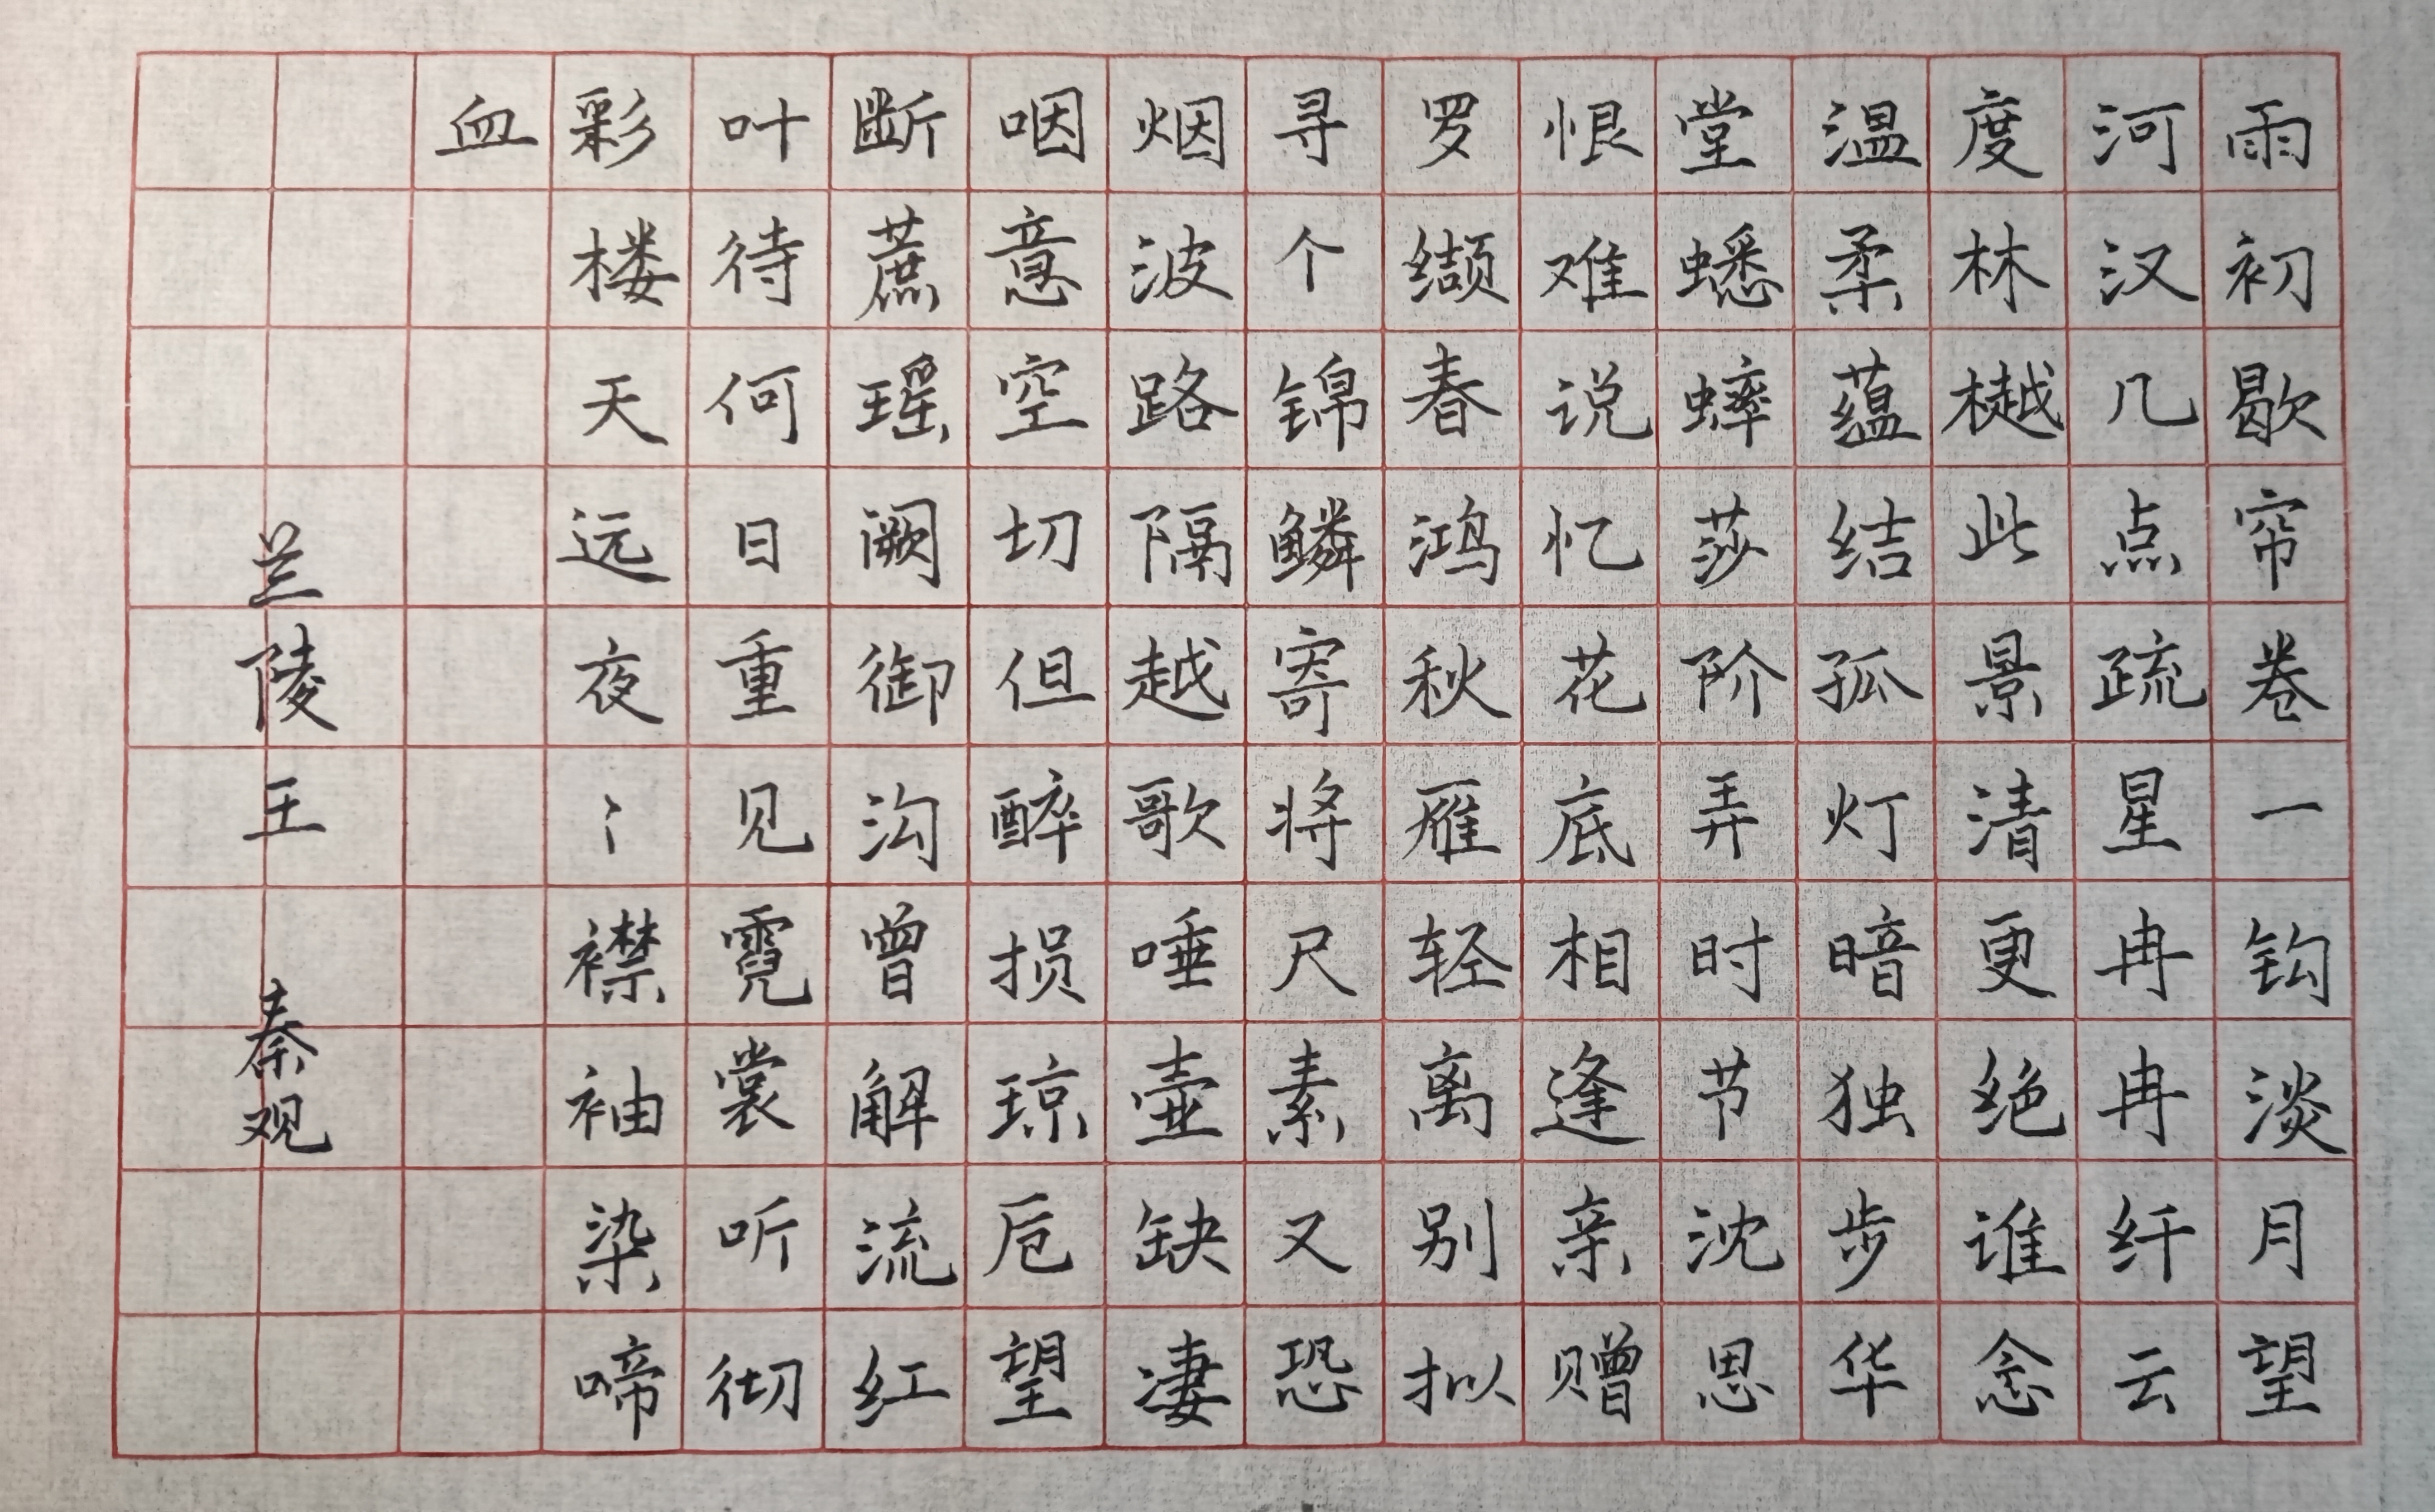 雨初歇帘卷一钩淡月望
河汉几点疏星冉冉纤云
度林樾此景清更绝谁念
温柔蕴结孤灯暗独步华
堂蟋蟀莎阶弄时节沈思
恨难说忆花底相逢亲赠
罗缬春鸿秋雁轻离别拟
寻个锦鳞寄将尺素又恐
烟波路隔越歌唾壶缺凄
咽意空切但醉损琼卮望
断蔗瑶阙御沟曾解流红
叶待何日重见霓裳听彻
彩楼天远夜〻襟袖染啼
血
兰陵王 秦观